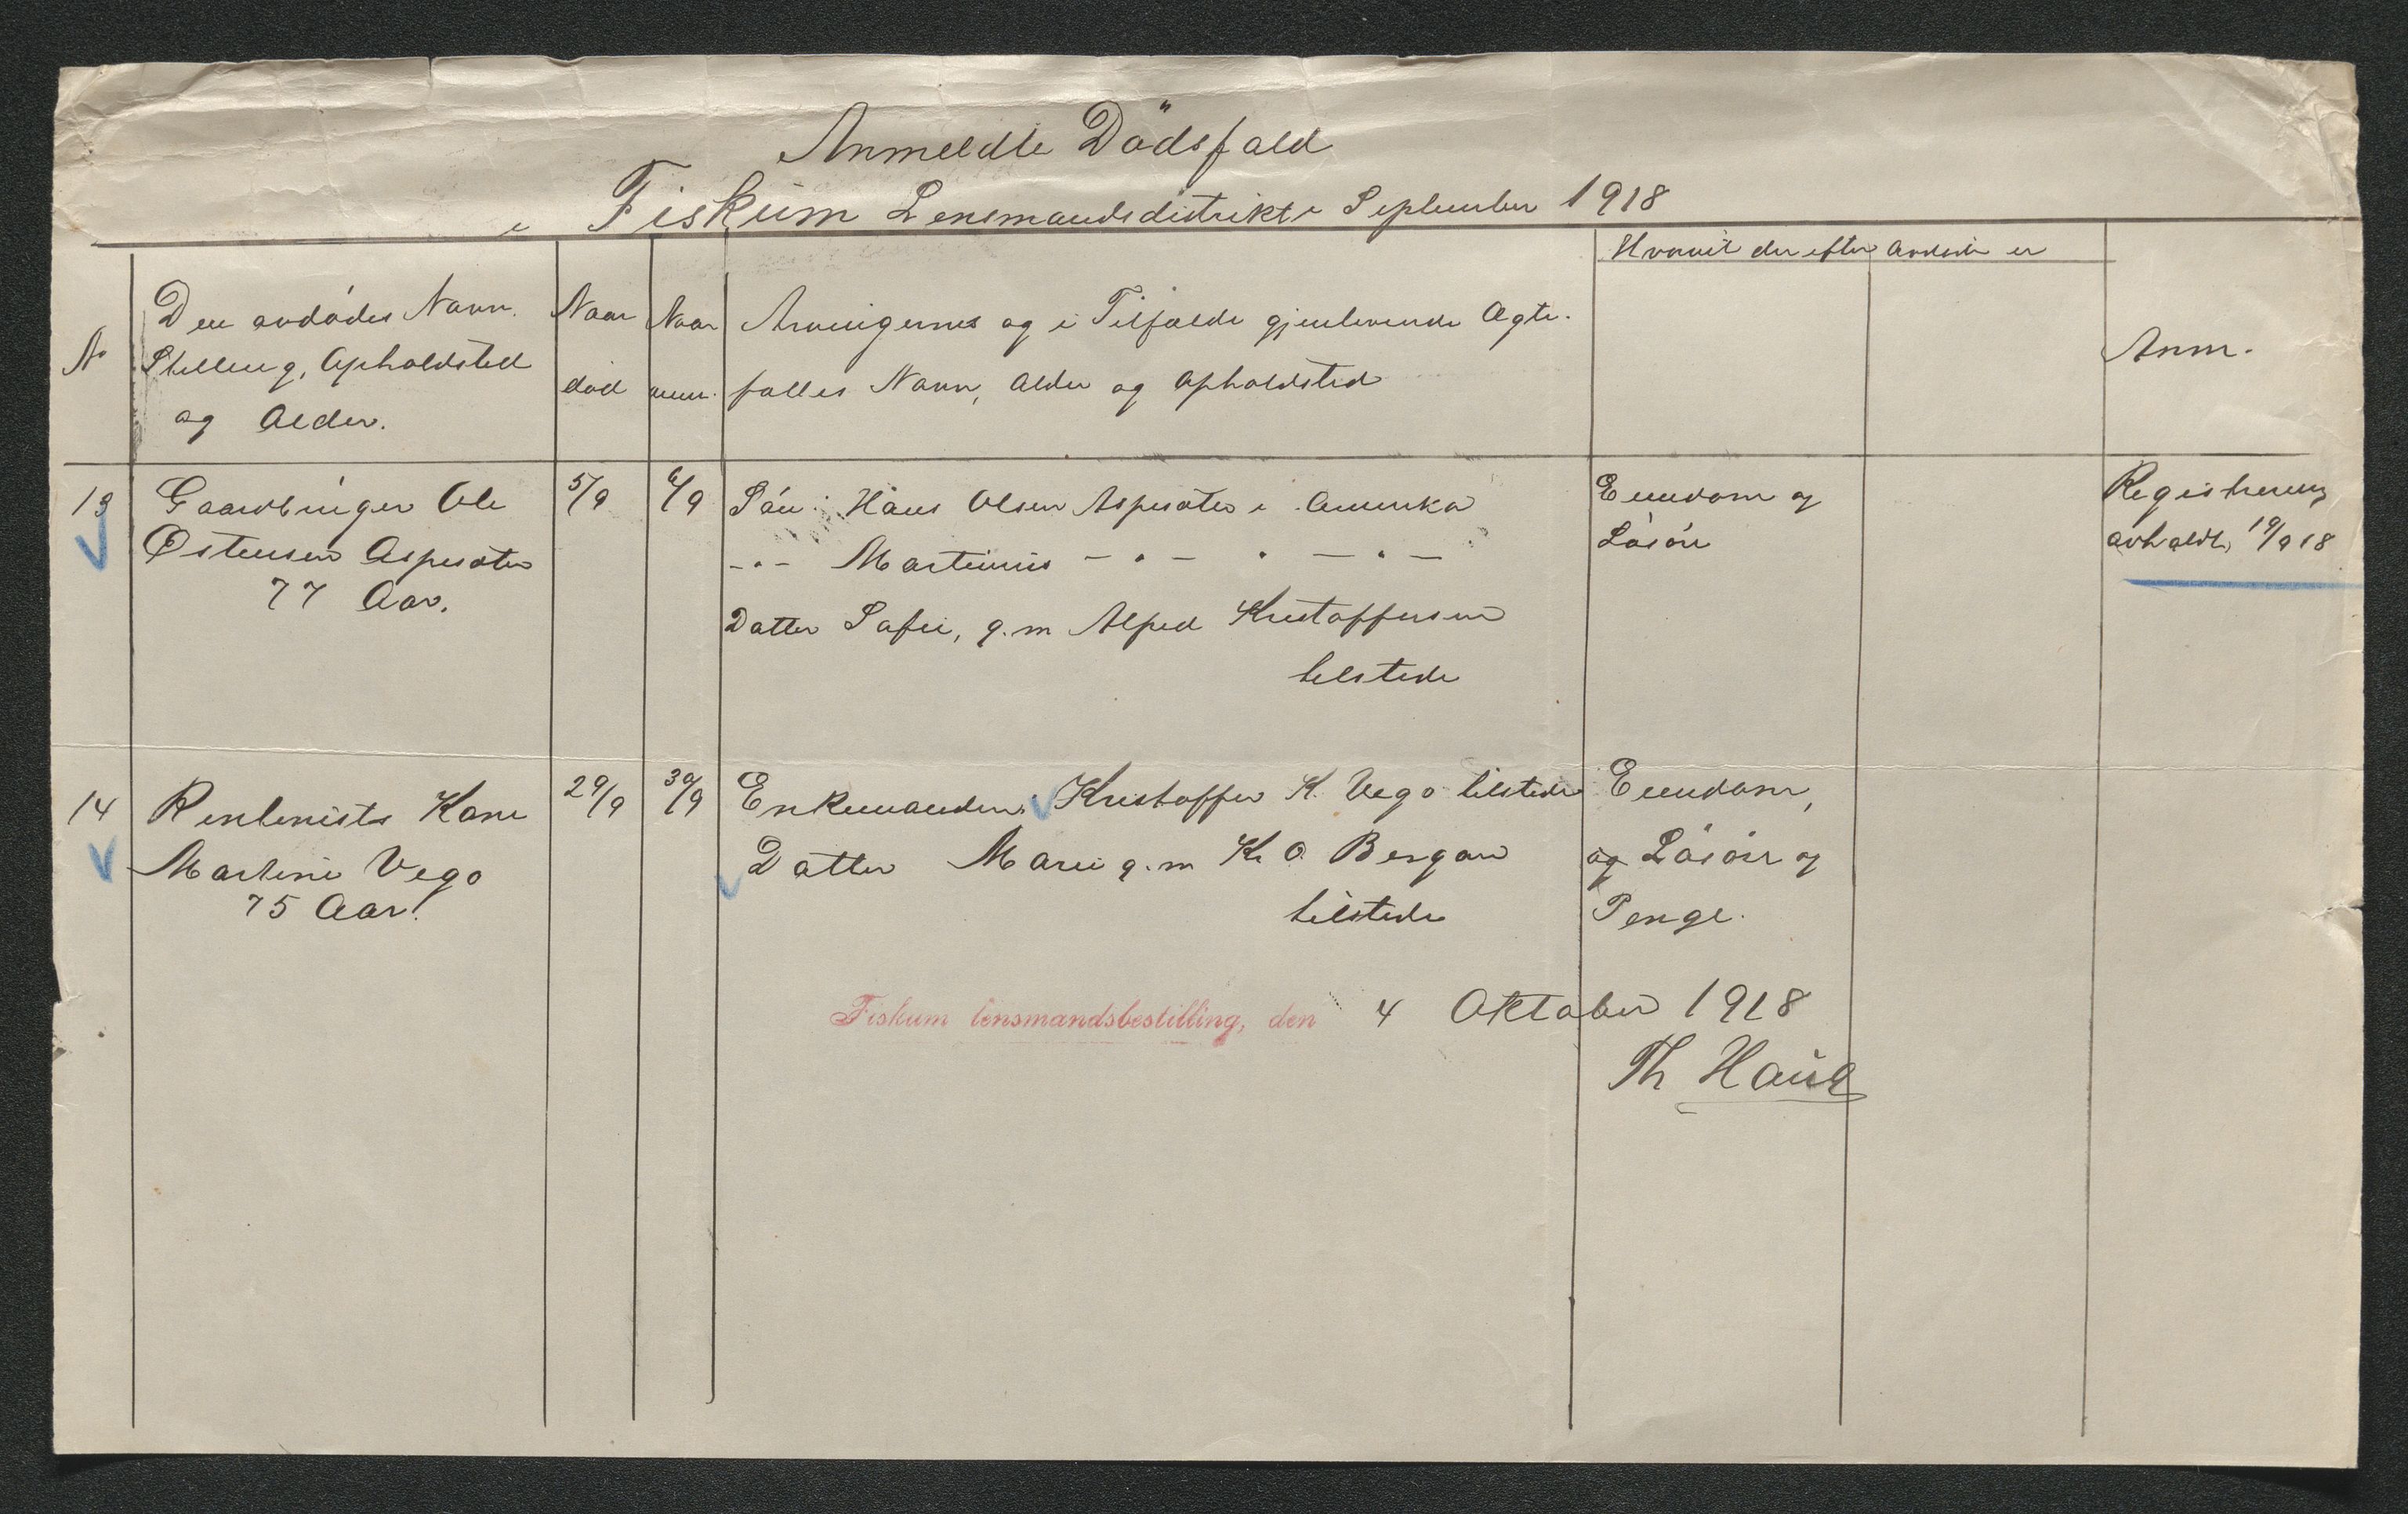 Anmeldte Dödsfald
i Fiskum Lensmandsdistrikt i September 1918
No
Den avdødes Navn.
Stilling, Opholdsted
og Alder.
Naar
død
Naar
anm.
Arvingernes og i Tilfælde gjenlevende Ægte-
fælles Navn, Alder og Opholdsted
Hvorvit der efter avdøde er
Anm.
13
Gaardbruger Ole
Østensen Aspesæter
77 Aar.
5/9
6/9
Søn: Hans Olsen Aspesæter i Amerika
-"- Martinius - " - " - " -
Datter Sofie, g.m Alfred Kristoffersen
tilstede
Eiendom og
Løsøre
Registrering
avholdt 19/9 18
14
Rentenists Kone
Martine Vego
75 Aar.
29/9
30/9
Enkemanden: Kristoffer K. Vego tilstede
Datter Marie g.m Kr O. Bergan
tilstede
Eiendom,
og Løsøre og
Penge.
Fiskum lensmandsbestilling, den 4 Oktober 1918
Th Haug